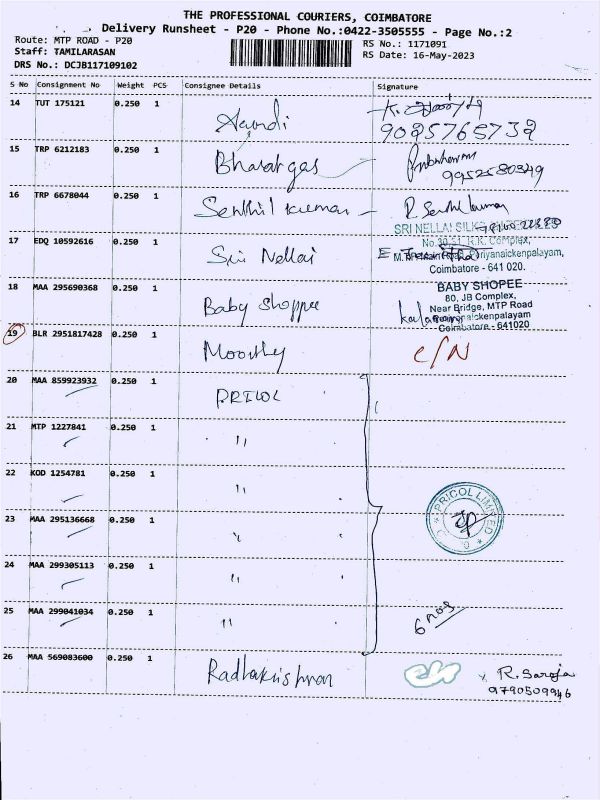 THE PROFESSIONAL COURIERS, COIMBATORE
Delivery Runsheet - P20 - Phone No.:0422-3505555 - Page No.:2
Route: MTP ROAD - P20
RS No.: 1171091
Staff: TAMILARASAN
RS Date: 16-May-2023
DRS No.: DCJB117109102
S No Consignment No Weight PCS Consignee Details Signature
14 TUT 175121 0.250 1
9025765732
15 TRP 6212183 0.250 1 Bharat gas
9952580349
16 TRP 6678044 0.250 1 Senthil kumar R. Senthil kumar
SRI NELLAI SILKS
17 EDQ 10592616 0.250 1 Sri Nellai
No.30-51, R.K. Complex,
Coimbatore - 641 020.
18 MAA 295690368 0.250 1 Baby Shoppee
BABY SHOPEE
80, JB Complex,
Near Bridge, MTP Road
Coimbatore - 641020
19 BLR 2951817428 0.250 1 Moorthy C/N
20 MAA 859923932 0.250 1 PRICOL
21 MTP 1227841 0.250 1 "
22 KOD 1254781 0.250 1 "
23 MAA 295136668 0.250 1 "
PRICOL LIMITED
24 MAA 299305113 0.250 1 "
25 MAA 299041034 0.250 1 "
6 nos
26 MAA 569083600 0.250 1 Radhakrishnan R. Saroja
9790509946